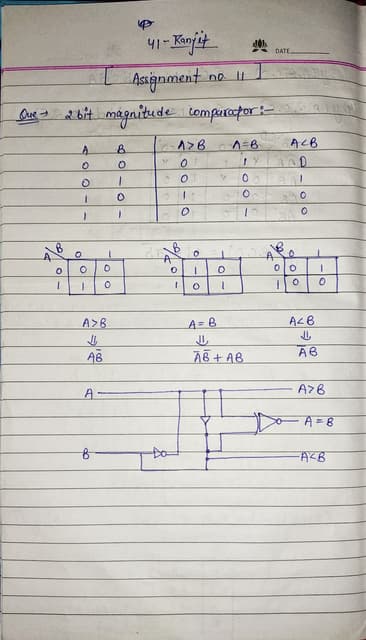 41 - Ranjit
DATE
[ Assignment no. 11 ]
Que → 2 bit magnitude comparator :-
A B A>B A=B A<B
0 0 0 1 0
0 1 0 0 1
1 0 1 0 0
1 1 0 1 0
B B B
A 0 1 A 0 1 A 0 1
0 0 0 0 1 0 0 0 1
1 1 0 1 0 1 1 0 0
A>B A=B A<B
⇓ ⇓ ⇓
AB̅ A̅B̅ + AB A̅B
A A>B
A=B
B A<B